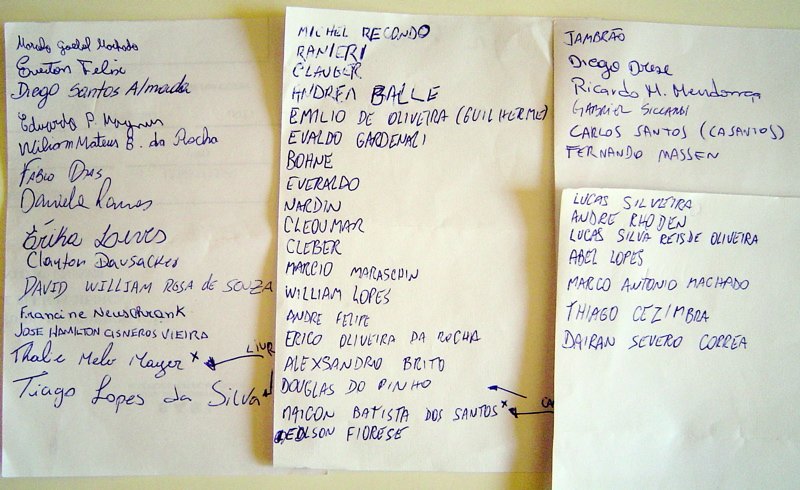 Marcelo Goebel Machado
Everton Felix
Diego Santos Almada
Eduardo P. Wagner
William Mateus B. da Rocha
Fabio Dias
Daniela Ramos
Erika
Clayton
DAVID WILLIAM ROSA DE SOUZA
Francine
JOSE HAMILTON CISNEROS VIEIRA
Melo Mayer x LIVR
Tiago Lopes da Silva
MICHEL RECONDO
RANIERI
CLAUBER
ANDREA BALLE
EMILIO DE OLIVEIRA (GUILHERME)
EVALDO GARDENALI
BOHNE
EVERALDO
NARDIN
CLEOUMAR
CLEBER
MARCIO MARASCHIN
WILLIAM LOPES
ANDRE FELIPE
ERICO OLIVEIRA DA ROCHA
ALEXSANDRO BRITO
DOUGLAS DO PINHO
MAICON BATISTA DOS SANTOS x CA
EDLSON FIORESE
JAMBRÃO
Diego
Ricardo M. Mendonça
GABRIEL
CARLOS SANTOS (CASANTOS)
FERNANDO MASSEN
LUCAS SILVEIRA
ANDRE RHODEN
LUCAS SILVA REIS DE OLIVEIRA
ABEL LOPES
MARCO ANTONIO MACHADO
THIAGO CEZIMBRA
DAIRAN SEVERO CORREA